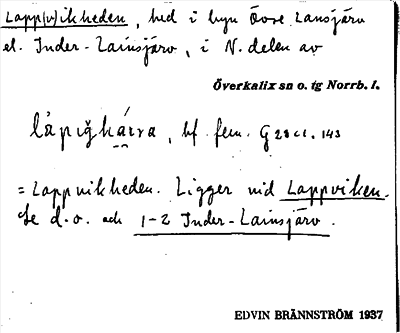 Lapp(v)ikheden, hed i byn Övre Lansjärv
el. Inder-Lainsjärv, i N. delen av
Överkalix sn o. tg Norrb. l.
bf. fem. G 28 c1. 143
= Lappvikheden. Ligger vid Lappviken.
Se d.o. och 1-2 Inder-Lainsjärv.
EDVIN BRÄNNSTRÖM 1937